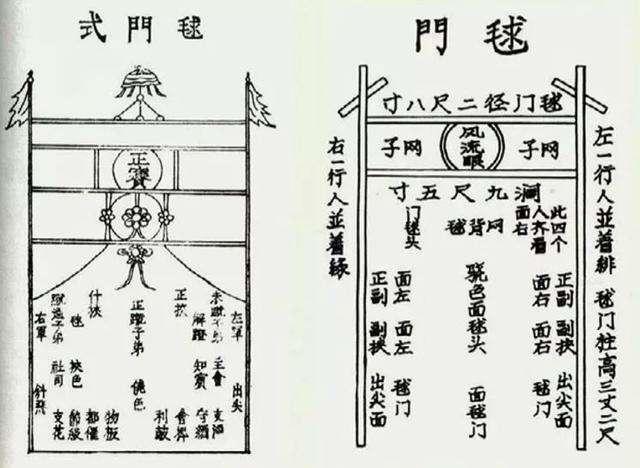 毬門式
正賽
左軍
出尖
主會
支酒
解蹬
知賓
守網
正挾
會幹
利鼓
正蹬子弟
驍色
什挾
物板
毬
挾色
都催
社司
節級
右軍
斜飛
支花
毬門
毬门径二尺八寸
网子
风流眼
网子
濶九尺五寸
左一行人並着緋 毬门柱高三丈二尺
此四个
人齐着
面右
网背毬
门毬头
正副 副挾 出尖面
面右 面右 毬门
骁色面毬头 面毬门
面左 面左 毬门
正副 副挾 出尖面
右一行人並着緑